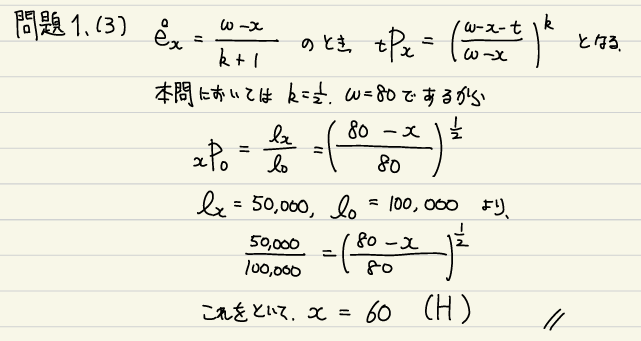 問題1.(3) e̊ₓ = (ω-x)/(k+1) のとき ₜPₓ = ((ω-x-t)/(ω-x))^k となる.
本問においては k=1/2. ω=80であるから
ₓP₀ = lₓ/l₀ = ((80-x)/80)^(1/2)
lₓ = 50,000, l₀ = 100,000 より,
50,000/100,000 = ((80-x)/80)^(1/2)
これをといて. x = 60 (H) //